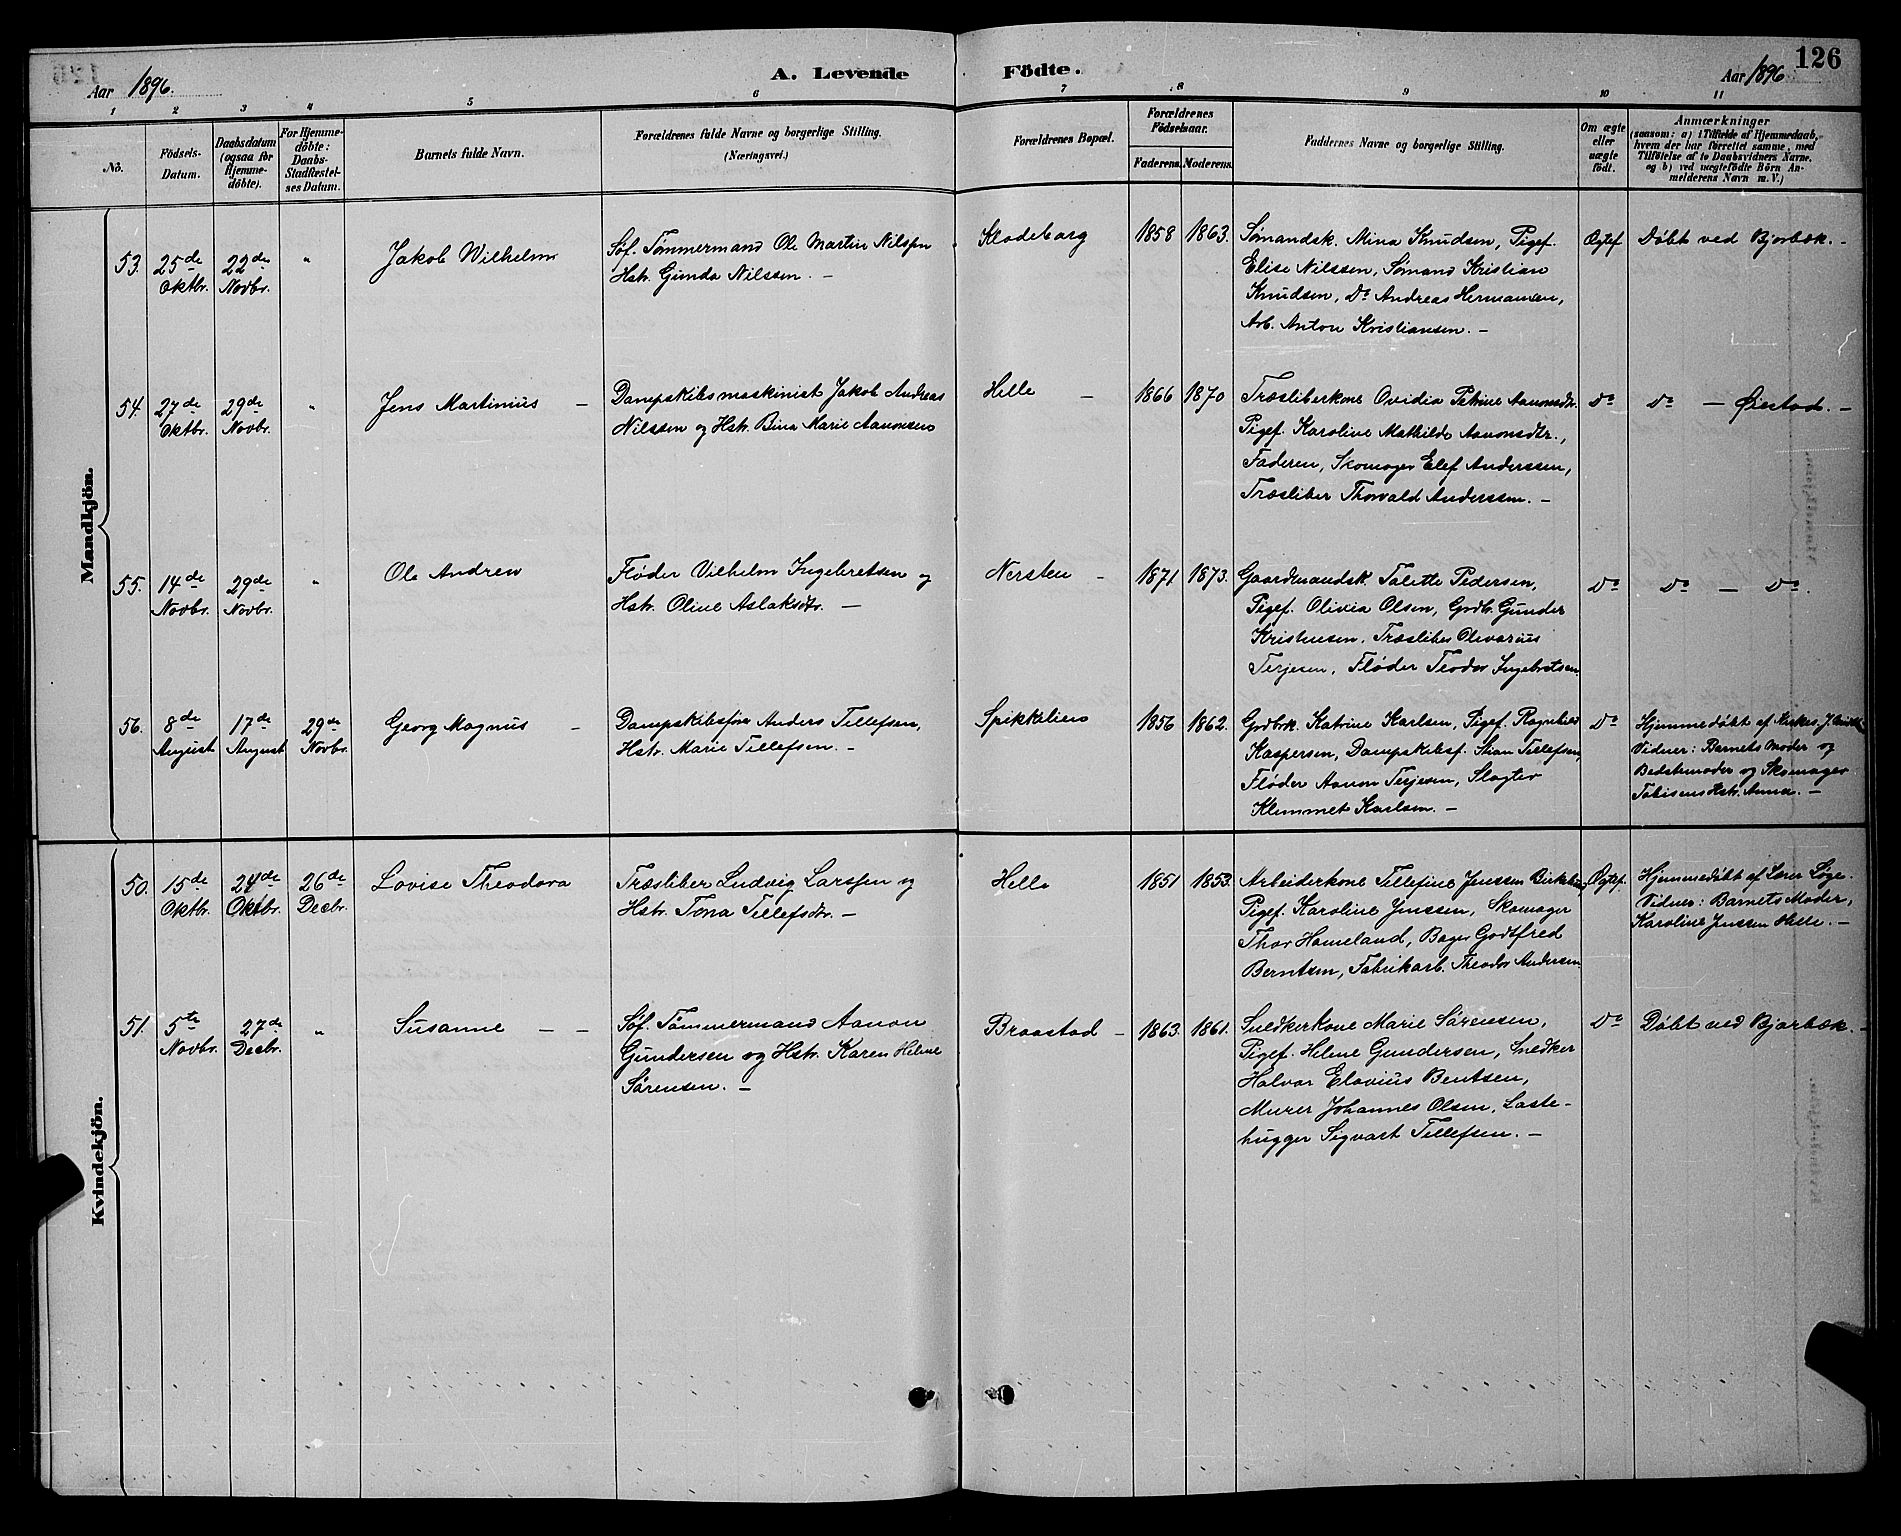 126
Aar 1896.
A. Levende
Födte.
Aar 1896
1 2 3 4 5 6 7 8 9 10 11
No.
Födsels-
Datum.
Daabsdatum
(ogsaa for
Hjemme-
döbte).
For Hjemme-
döbte:
Daabs-
Stadfæstel-
ses Datum.
Barnets fulde Navn.
Forældrenes fulde Navne og borgerlige Stilling.
(Næringsvei.)
Forældrenes Bopæl.
Forældrenes
Födselsaar.
Faderens. Moderens.
Faddernes Navne og borgerlige Stilling.
Om ægte
eller
uægte
født.
Anmærkninger
(saasom: a) i Tilfælde af Hjemmedaab,
hvem der har forrettet samme, med
Tilföielse af to Daabsvidners Navne,
og b) ved uægtefödte Börn An-
melderens Navn m. V.)
Mandkjön.
53.
25de
Oktbr.
22de
Novbr.
"
Jakob Wilhelm
Søf. Tømmermand Ole Martin Nilssen
Hstr. Gunda Nilssen. —
Klodeborg
1858 1863.
Sømandsk. Mina Knudsen, Pigef.
Elise Nilssen, Sømand Kristian
Knudsen, Do Andreas Hermansen,
Arb. Anton Kristiansen. —
Ægtef.
Døbt ved Bjorbæk. —
54.
27de
Oktbr.
29de
Novbr.
"
Jens Martinius —
Dampskibsmaskinist Jakob Andreas
Nilssen og Hstr. Bina Marie Aanonsen
Helle —
1866 1870
Træsliberkone Ovidia Petrine Aanonsdtr.
Pigef. Karoline Mathilde Aanonsdtr.,
Faderen, Skomager Elef Anderssen,
Træsliber Thorvald Anderssen. —
Do
Do — Øiestad. —
55.
14de
Novbr.
29de
Novbr.
"
Ole Andreas
Fløder Vilhelm Ingebretsen og
Hstr. Oline Aslaksdtr. —
Nersten —
1871 1873.
Gaardmandsk. Talette Pedersen,
Pigef. Olivia Olsen, Grdbr. Gunder
Kristensen, Træsliber Olivarius
Terjesen, Fløder Teodor Ingebretsen
Do
Do — Do.
56.
8de
August
17de
August
29de
Novbr.
Georg Magnus —
Dampskibsfører Anders Tellefsen,
Hstr. Marie Tellefsen. —
Spikkelien
1856 1862.
Grdbrk. Katrine Karlsen, Pigef. Ragnhild
Kaspersen, Dampskibsf. Stian Tellefsen,
Fløder Aanon Terjesen, Slagter
Klemmet Karlsen. —
Do
Hjemmedøbt af Kirkes.
Vidner: Barnets Moder og
Bedstemoder og Skomager
Tobisens Hstr. Anna. —
Kvindekjön.
50.
15de
Oktbr.
24de
Oktbr.
26de
Decbr.
Lovise Theodora
Træsliber Ludvig Larssen og
Hstr. Tona Tellefsdtr. —
Helle
1851 1853.
Arbeiderkone Tellefine Jenssen
Pigef. Karoline Jenssen, Skomager
Thor Hameland, Bager Godtfred
Berntsen, Fabrikarb. Theodor Andersen
Ægtef.
Hjemmedøbt af Lærer Løge.
Vidner: Barnets Moder,
Karoline Jenssen Helle. —
51.
5te
Novbr.
27de
Decbr.
"
Susanne — —
Søf. Tømmermand Aanon
Gundersen og Hstr. Karen Helene
Sørensen. —
Braastad —
1863. 1861.
Snedkerkone Marie Sørensen,
Pigef. Helene Gundersen, Snedker
Halvor Elovius Bentsen,
Murer Johannes Olsen, Laste-
hugger Sigvart Tellefsen. —
Do
Døbt ved Bjorbæk. —